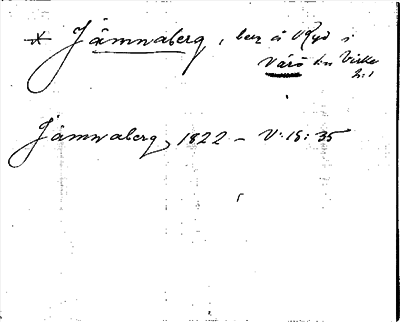 * Jämnaberg, berg å Ryd i
Värö sn Viske
h:d
Jämnaberg, 1822 – V: 18: 35